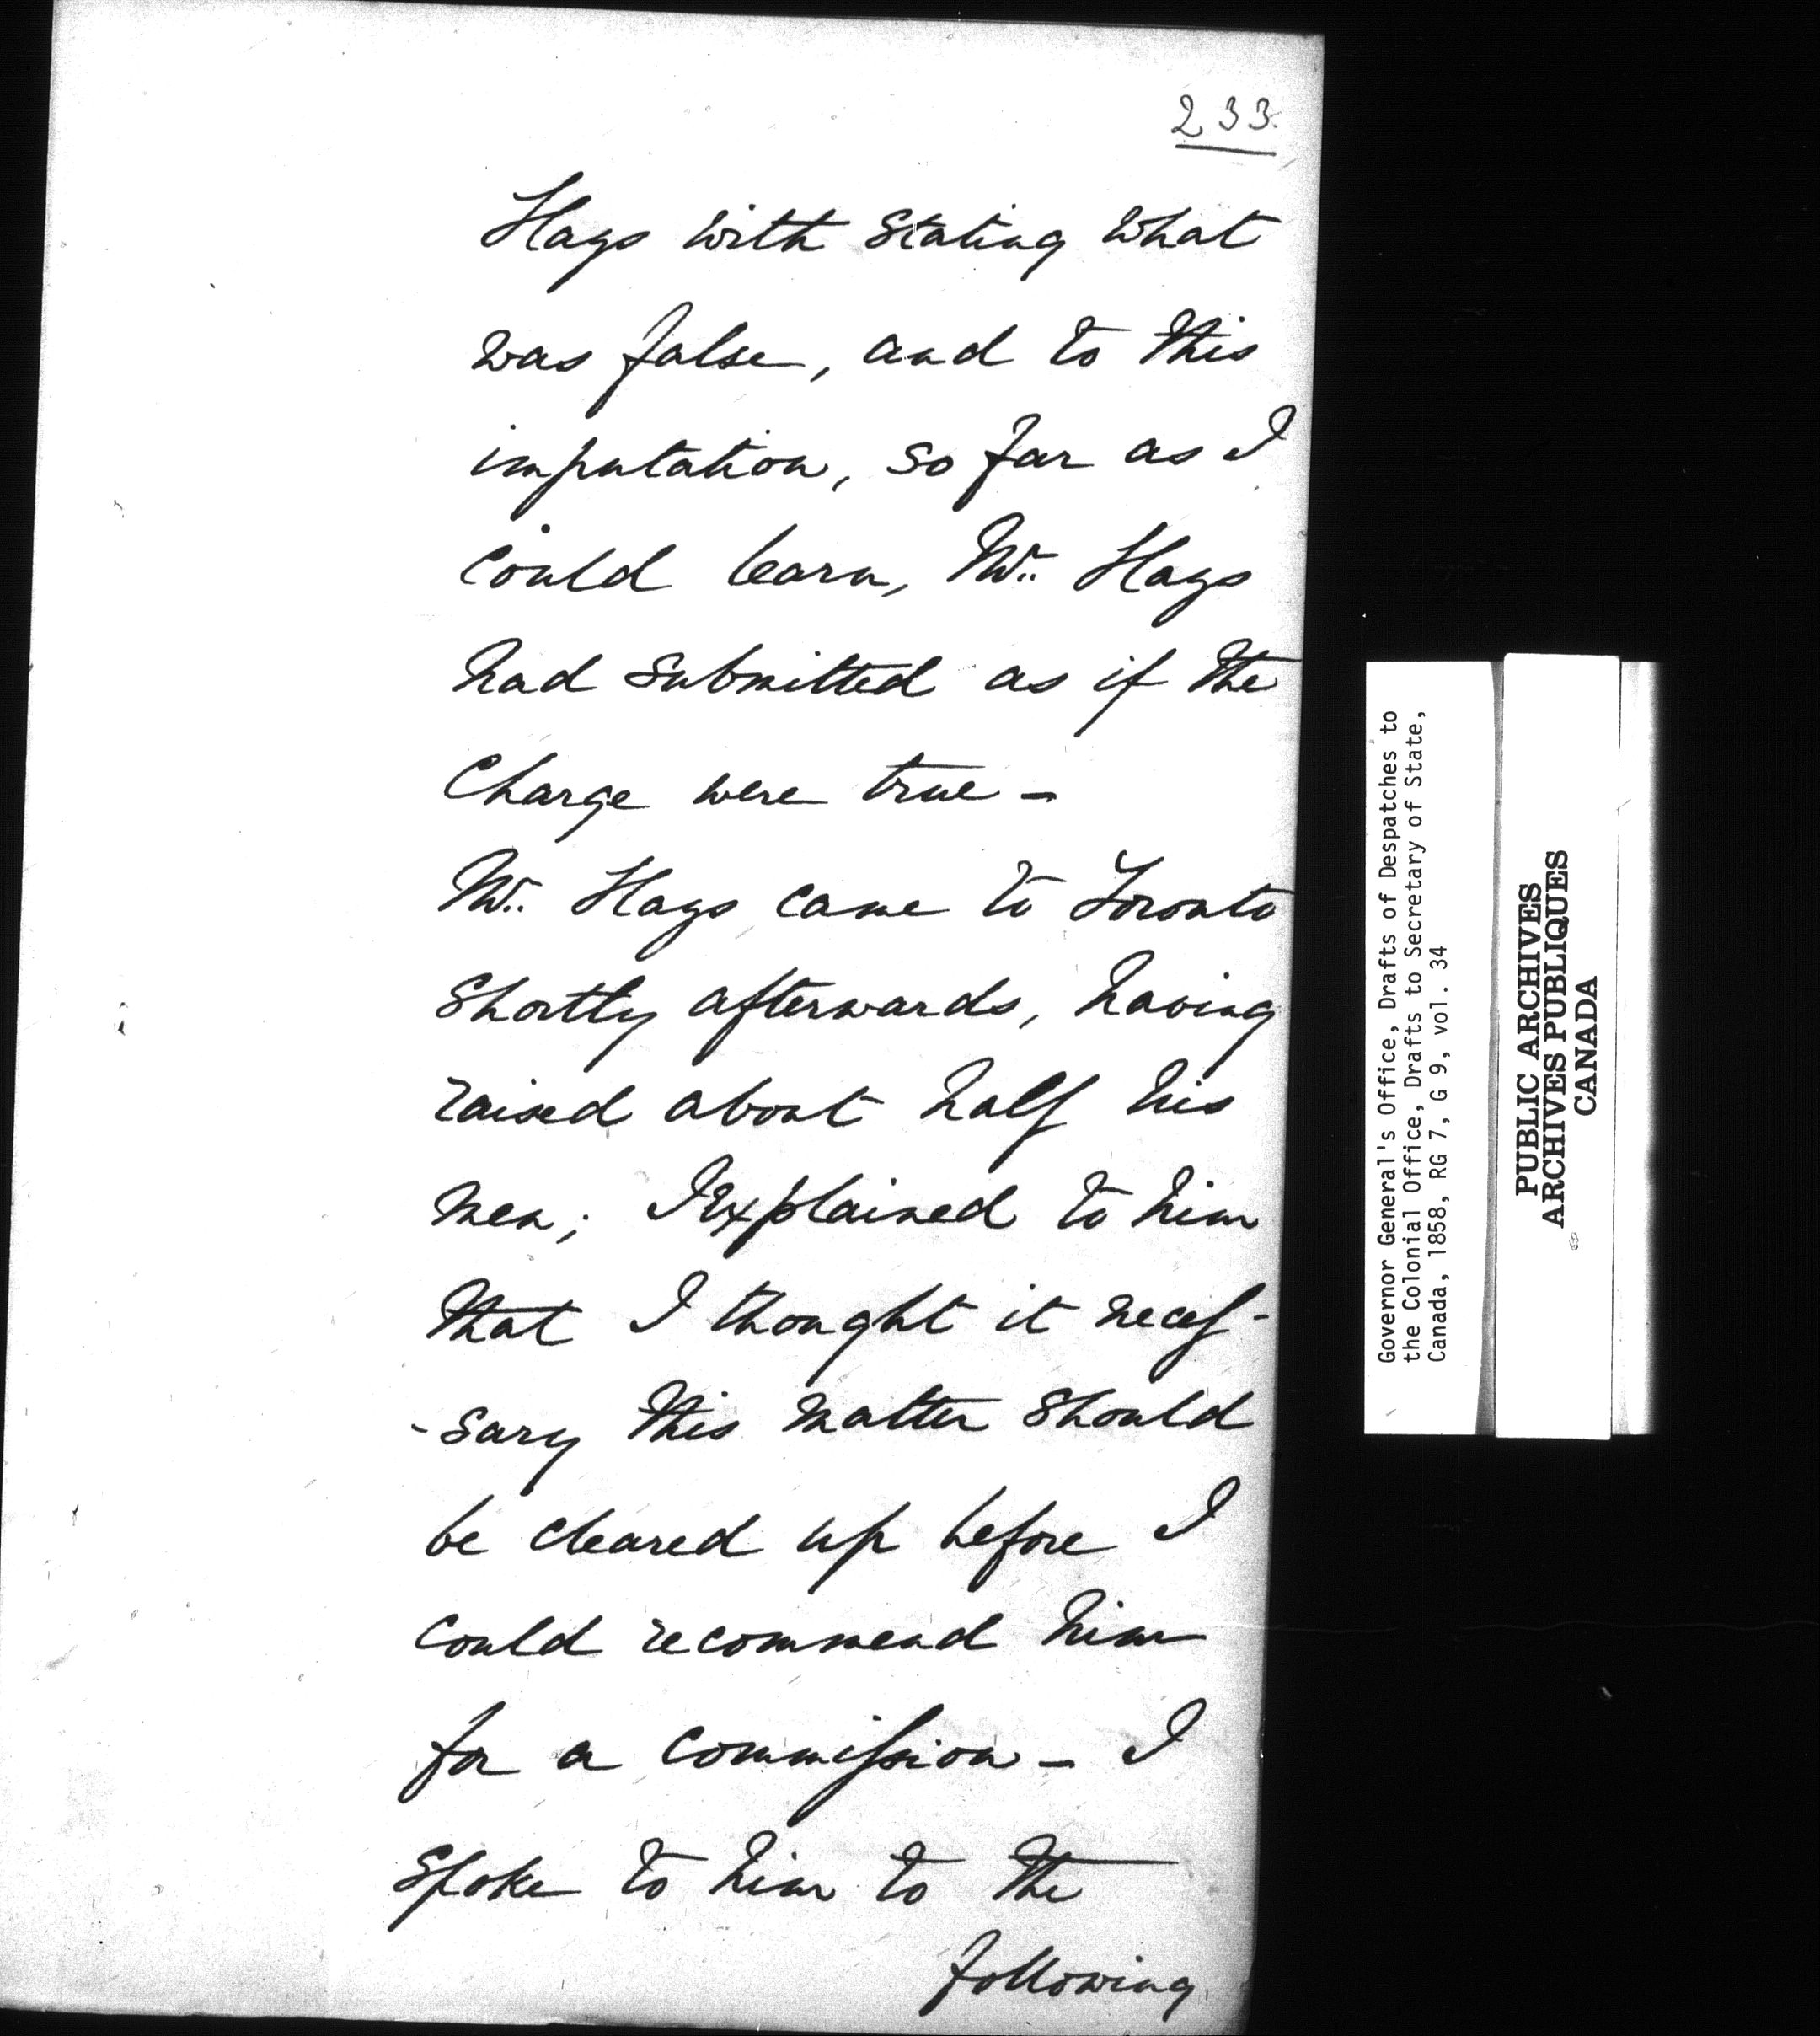 233.
Hays with stating what
was false, and to this
imputation, so far as I
could learn, Mr. Hays
had submitted as if the
charge were true –
Mr. Hays came to Toronto
shortly afterwards, having
raised about half his
men; I explained to him
that I thought it neces-
-sary this matter should
be cleared up before I
could recommend him
for a commission – I
spoke to him to the
following
Governor General's Office, Drafts of Despatches to
the Colonial Office, Drafts to Secretary of State,
Canada, 1858, RG 7, G 9, vol. 34
PUBLIC ARCHIVES
ARCHIVES PUBLIQUES
CANADA